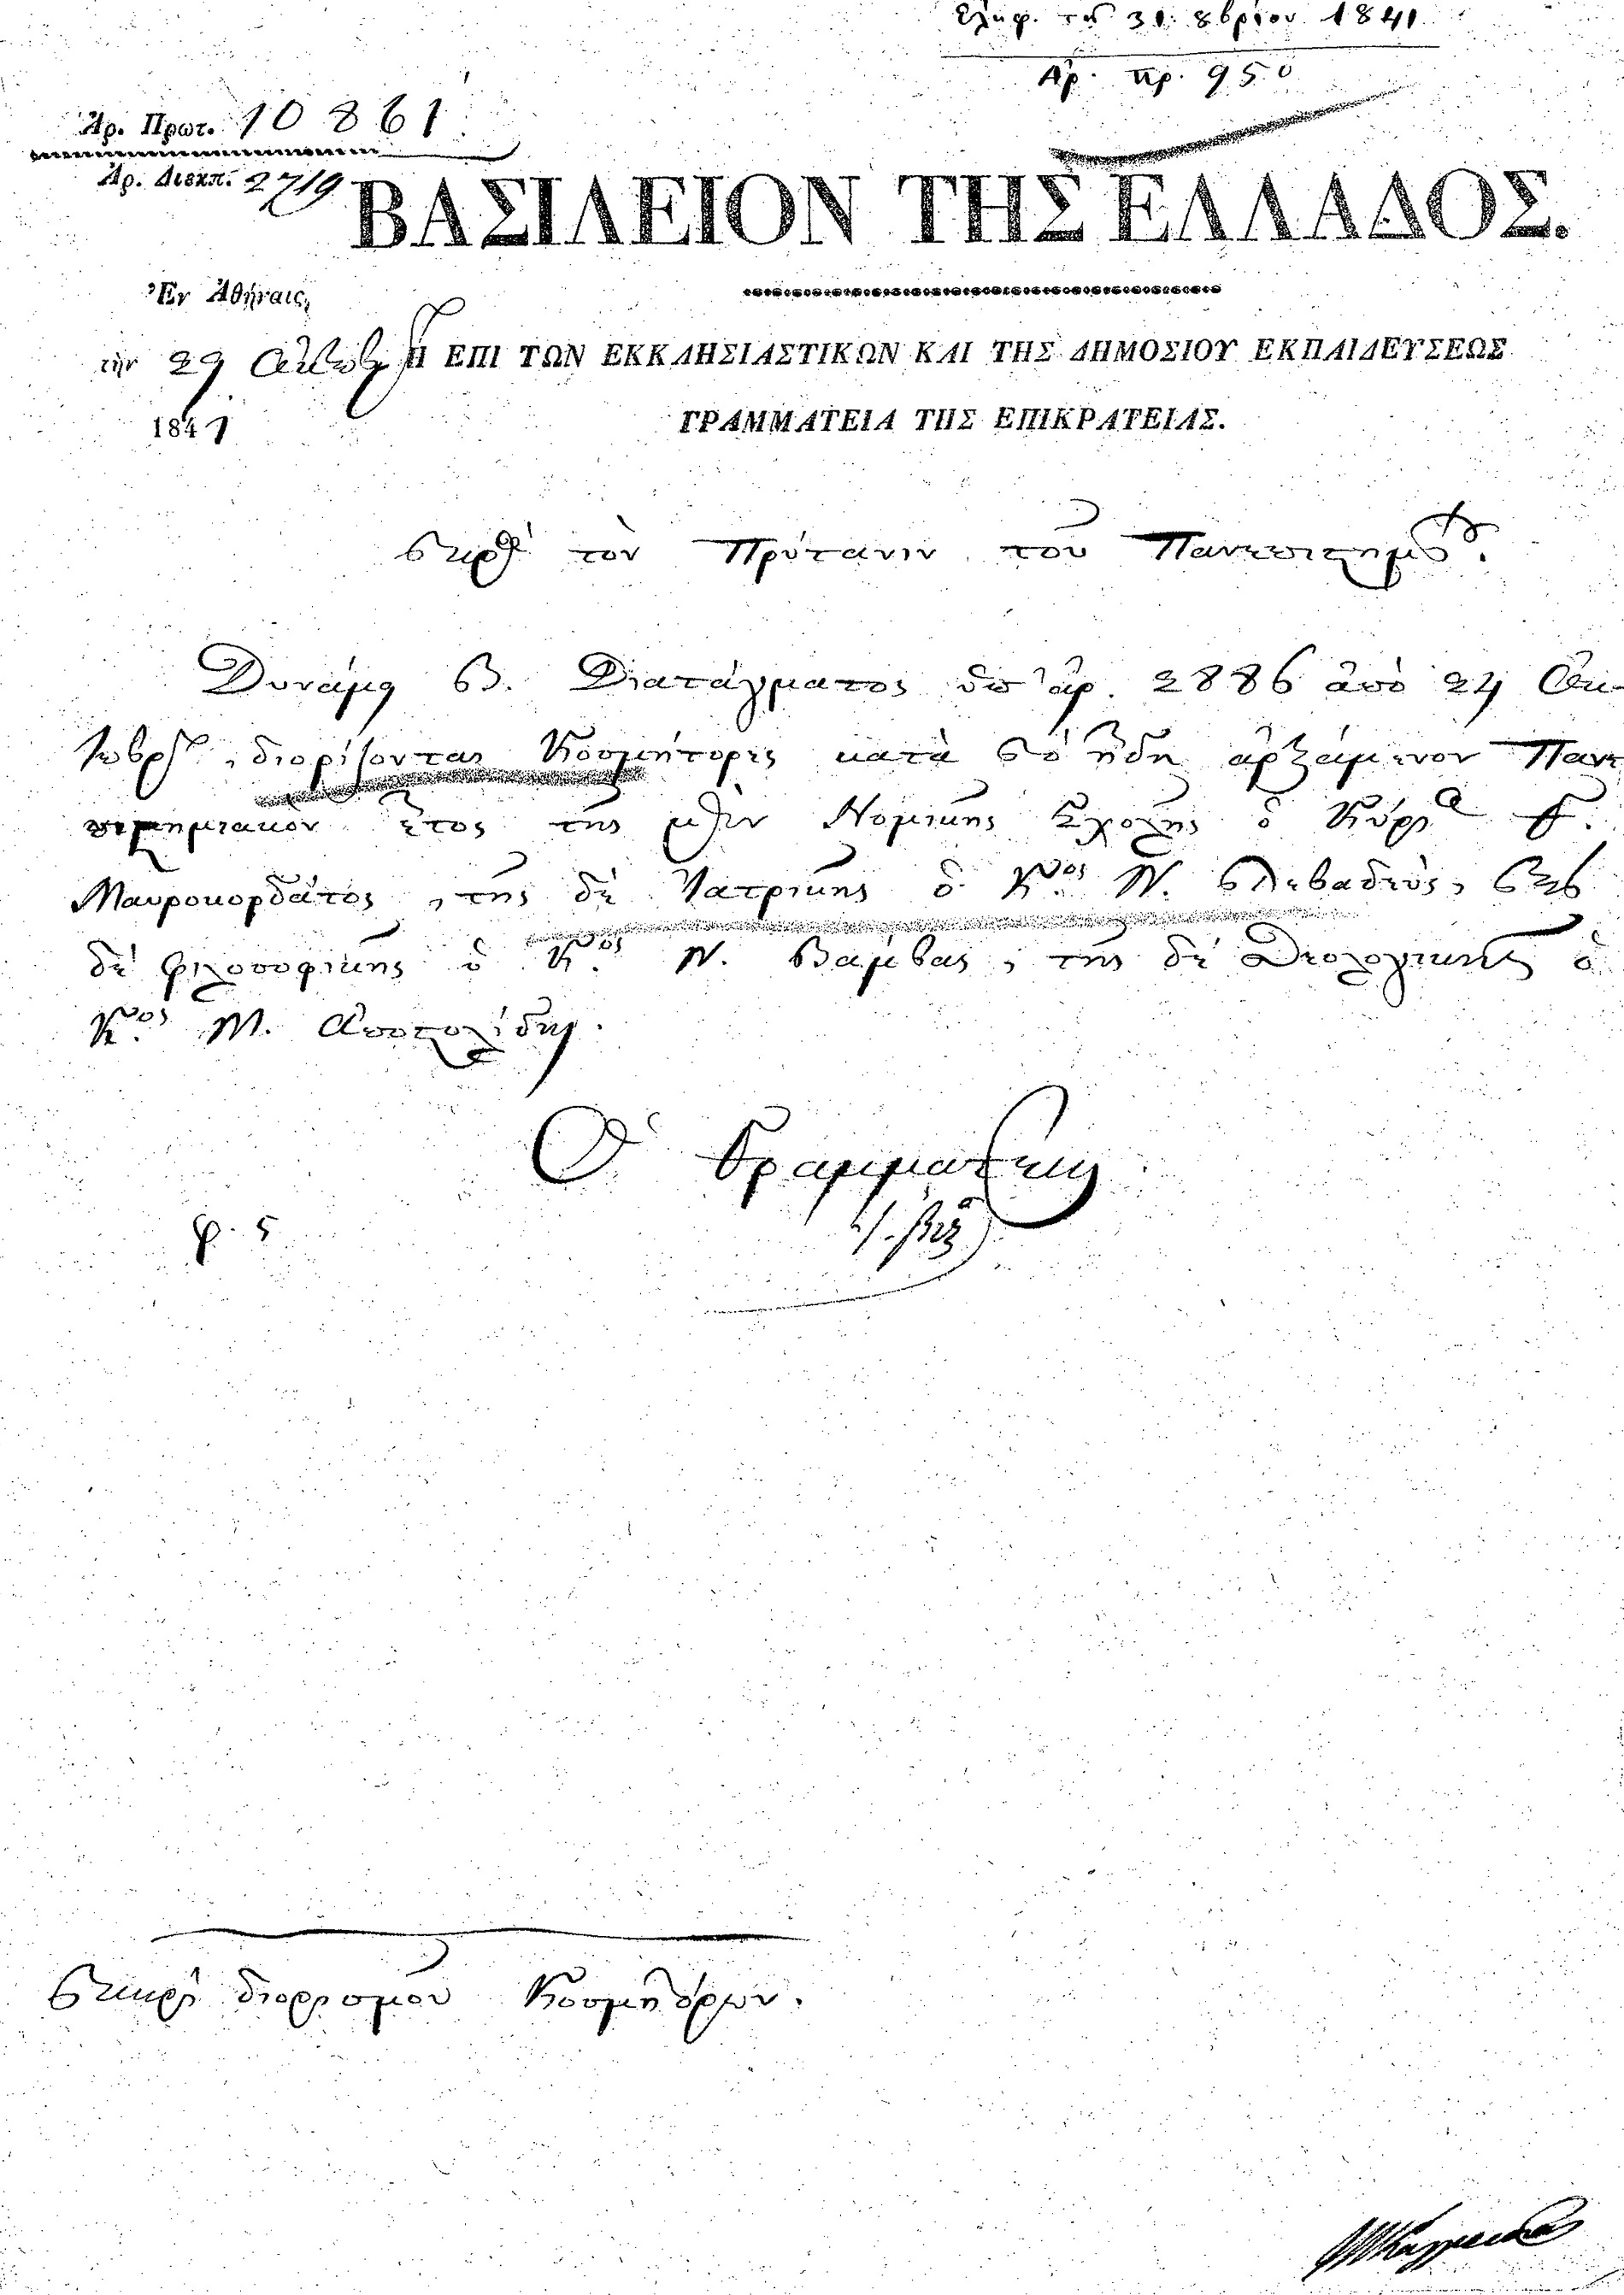 Ἐλήφ. τῇ 31 8βρίου 1841
Ἀρ. πρ. 950
Ἀρ. Πρωτ. 10861
Ἀρ. Διεκπ. 2719
ΒΑΣΙΛΕΙΟΝ ΤΗΣ ΕΛΛΑΔΟΣ.
Ἐν Ἀθήναις,
τὴν 29 Ὀκτωβ
1841
Η ΕΠΙ ΤΩΝ ΕΚΚΛΗΣΙΑΣΤΙΚΩΝ ΚΑΙ ΤΗΣ ΔΗΜΟΣΙΟΥ ΕΚΠΑΙΔΕΥΣΕΩΣ
ΓΡΑΜΜΑΤΕΙΑ ΤΗΣ ΕΠΙΚΡΑΤΕΙΑΣ.
πρὸς τὸν Πρύτανιν τοῦ Πανεπιστημίου.
Δυνάμει Β. Διατάγματος ὑπ' ἀρ. 2886 ἀπὸ 24 Ὀκ-
τωβρίου, διορίζονται Κοσμήτορες κατὰ τὸ ἤδη ἀρξάμενον Πανε
πιστημιακὸν ἔτος τῆς μὲν Νομικῆς Σχολῆς ὁ Κύριος
Μαυροκορδάτος, τῆς δὲ Ἰατρικῆς ὁ Κος Ν. Λεβαδεὺς, τῆς
δὲ φιλοσοφικῆς ὁ Κος Ν. Βάμβας, τῆς δὲ Θεολογικῆς ὁ
Κος Μ. Ἀποστολίδης.
Ὁ Γραμματεὺς
φ. 5
περὶ διορισμοῦ Κοσμητόρων.